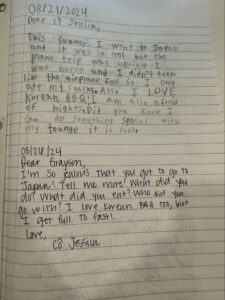 08/21/2024
Dear Cô Jessica,
This Summer I went to Japan
and it was so cool but the
plane trip was
was bored and I didn't even
like the airplane food so I only
ate my snacks. Also I LOVE
Korean BBQ! I am also afraid
of hights. Did you know I
can do something special with
my tounge it is cool.
08/26/24
Dear Grayson,
I'm so jealous that you got to go to
Japan! Tell me more! What did you
do? What did you eat? Who did you
go with? I love Korean BBQ too, but
I get full to fast!
Love,
Cô Jessica